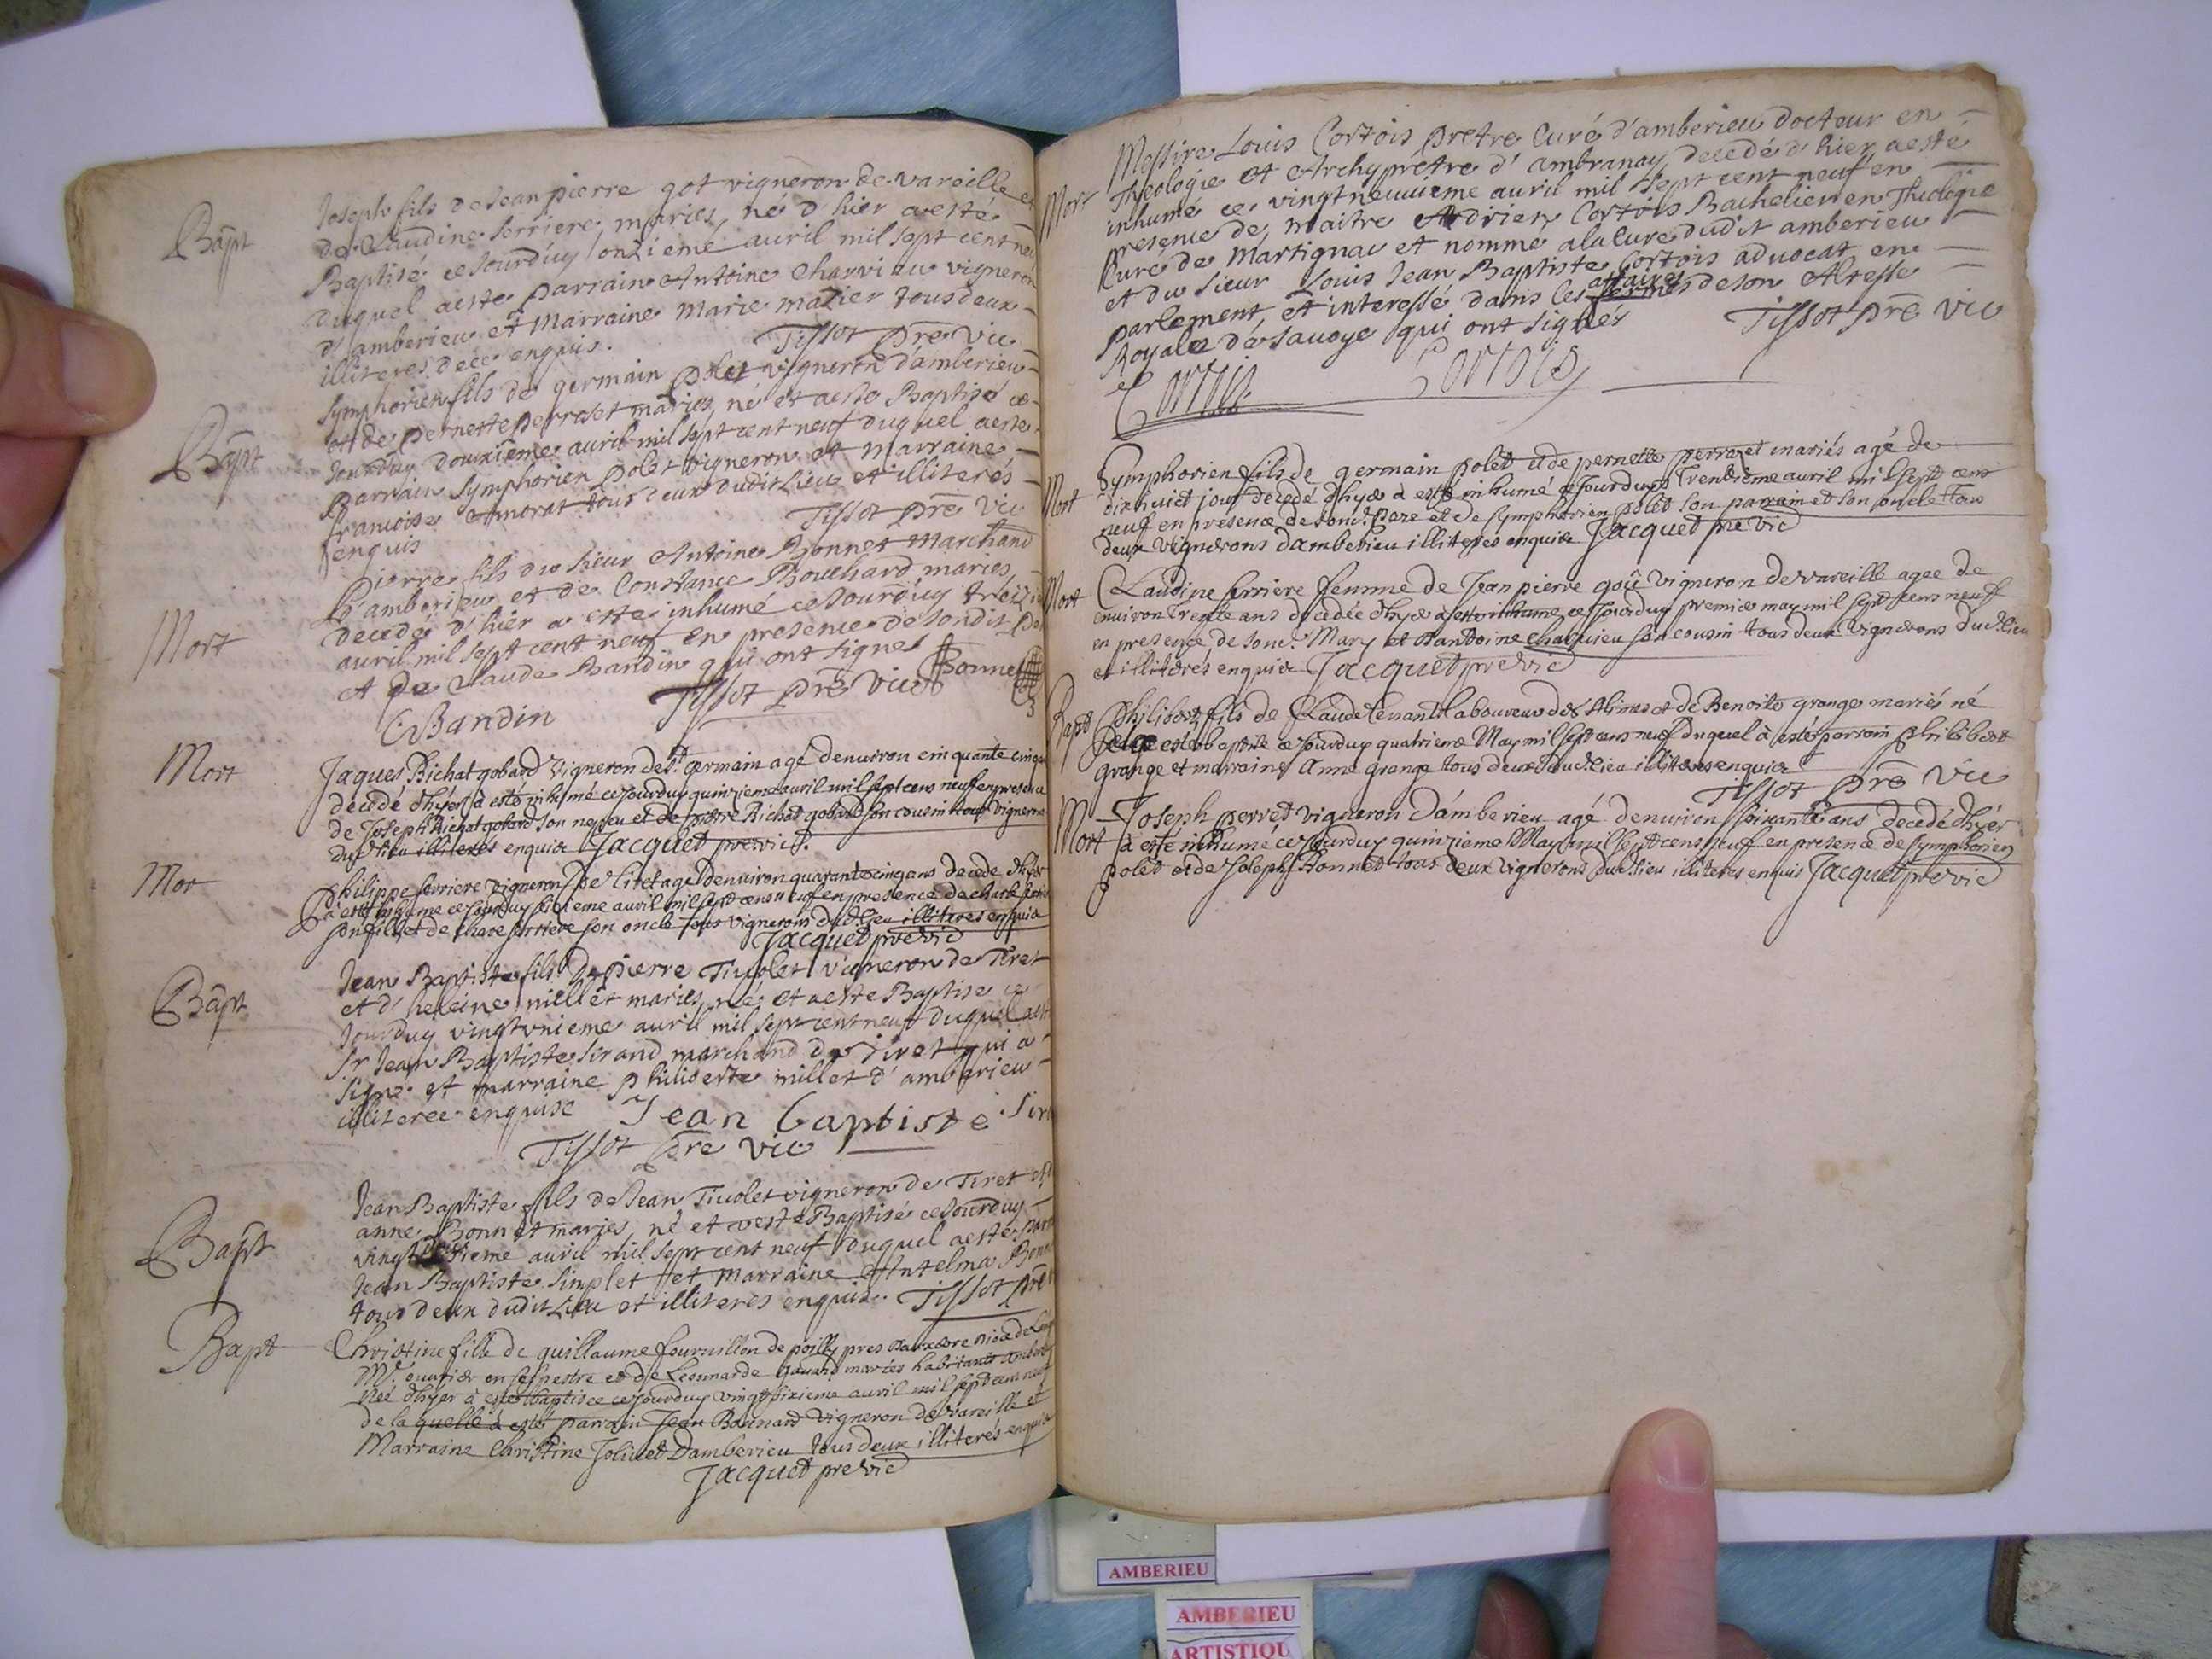 Bapt
Joseph fils de Jean pierre got vigneron de vareille et
de Claudine serriere maries, né d'hier a esté
Baptisé ce Jourd'uy onzieme auril mil sept cent neu
duquel a esté parrain Antoine Charvieu vigneron
d'amberieu et Marraine Marie mazier tous deux
illiteres de ce enquis. Tissot pre vic
Bapt
Symphorien fils de germain polet vigneron d'amberieu
et de pernette perrozet maries, né et a esté Baptisé ce
Jourduy douzieme auril mil sept cent neuf duquel a esté
parrain Symphorien polet vigneron et Marraine
francoise Amorat tous deux dudit Lieu et illiterés
enquis Tissot pre vic
Mort
Pierre fils du sieur Antoine Bonnet Marchand
d'amberieu et de Constance Bouchard maries
decedé d'hier a esté inhumé ce Jourd'uy treizi
auril mil sept cent neuf en presence de sondit pe
et de Claude Bandin qui ont signes
Bonnet
Tissot pre vic
C Bandin
Mort
Jaques Richat gobard Vigneron de St germain agé denuiron cinquante cinq
decedé d'hyer à esté inhumé ce Jourduy quinzieme auril mil sept cens neuf en presence
de Joseph Richat gobard son nepueu et de pierre Richat gobard son cousin tous vignerons
dud. lieu illiterés enquis Jacquet pre vic.
Mor
Philippe serriere vigneron de Tiret agé denuiron quarante cinq ans decedé d'hyer
a esté inhumé ce Jourduy sizieme auril mil sept cens neuf en presence de charle
son fils et de serriere son oncle tous vignerons dud. lieu illiteres enquis
Jacquet pre vic
Bapt
Jean Baptiste fils de pierre Tiuolet vigneron de Tiret
et d'heleine millet maries, né et a esté Baptisé ce
Jourduy vingt unieme auril mil sept cent neuf duquel a est
Sr Jean Baptiste Sirand marchand de Tiret qui a
signé et marraine philiberte millet d'amberieu
illiteree enquise Jean baptiste Sira
Tissot pre vic
Bapt
Jean Baptiste fils de Jean Tiuolet vigneron de Tiret et
anne Bonnet maries, né et a esté Baptisé ce Jourduy
auril mil sept cent neuf duquel a esté parr
Jean Baptiste Simplet et marraine Antelma Bonn
tous deux dudit Lieu et illiteres enquis. Tissot pre
Bapt
Christine fille de guillaume fournillon de poilly pres
Me. ouurier en et de Leonnarde mariés habitants
née d'hyer à esté baptisée ce Jourduy vingt sizieme auril mil sept cens neuf
de la quelle à esté parrain Jean Bonnard vigneron de vareille et
Marraine Christine Joliuet Damberieu tous deux illiterés enquis
Jacquet pre vic
Mort
Messire Louis Cortois pretre Curé d'amberieu docteur en
Theologie et Archyprêtre d'ambranay decedé d'hier a esté
inhumé ce vingt neuuieme auril mil sept cent neuf en
presence de maitre Adrien Cortois Bachelier en Theologie
Curé de Martignac et nommé a la Cure dudit amberieu
et du sieur Louis Jean Baptiste Cortois aduocat en
parlement, et interessé dans les affaires de son Altesse
Royale de Sauoye qui ont signés Tissot pre vic
Cortois Cortois
Mort
Symphorien fils de germain polet et de pernette perrozet mariés agé de
dixhuict jour decedé d'hyer à esté inhumé ce Jourduy Trentieme auril mil sept cens
neuf en presence de sond. Pere et de Symphorien polet son parrain et son oncle tous
deux Vignerons damberieu illiterés enquis Jacquet pre vic
Mort
Claudine serriere femme de Jean pierre got vigneron de vareille agee de
enuiron Trente ans decedée d'hyer a esté inhumé ce Jourduy premier may mil sept cens neuf
en presence de sond. Mary et d'antoine Charuieu son cousin tous deux Vignerons dud. lieu
et illiterés enquis Jacquet pre vic
Bapt
Philibert fils de Claude Tenant laboureur des Alimes et de Benoite grange mariés né
et a esté baptisé ce Jourduy quatrieme May mil sept cens neuf duquel à esté parrain philibert
grange et marraine Anne grange tous deux dud. lieu illiteres enquis
Tissot pre vic
Mort
Joseph perret vigneron d'amberieu agé denuiron soixante ans decedé d'hyer
à esté inhumé ce Jourduy quinzieme May mil sept cens neuf en presence de symphorien
polet et de Joseph Bonnet tous deux vignerons dud. lieu illiteres enquis Jacquet pre vic
AMBERIEU
AMBERIEU
ARTISTIQU